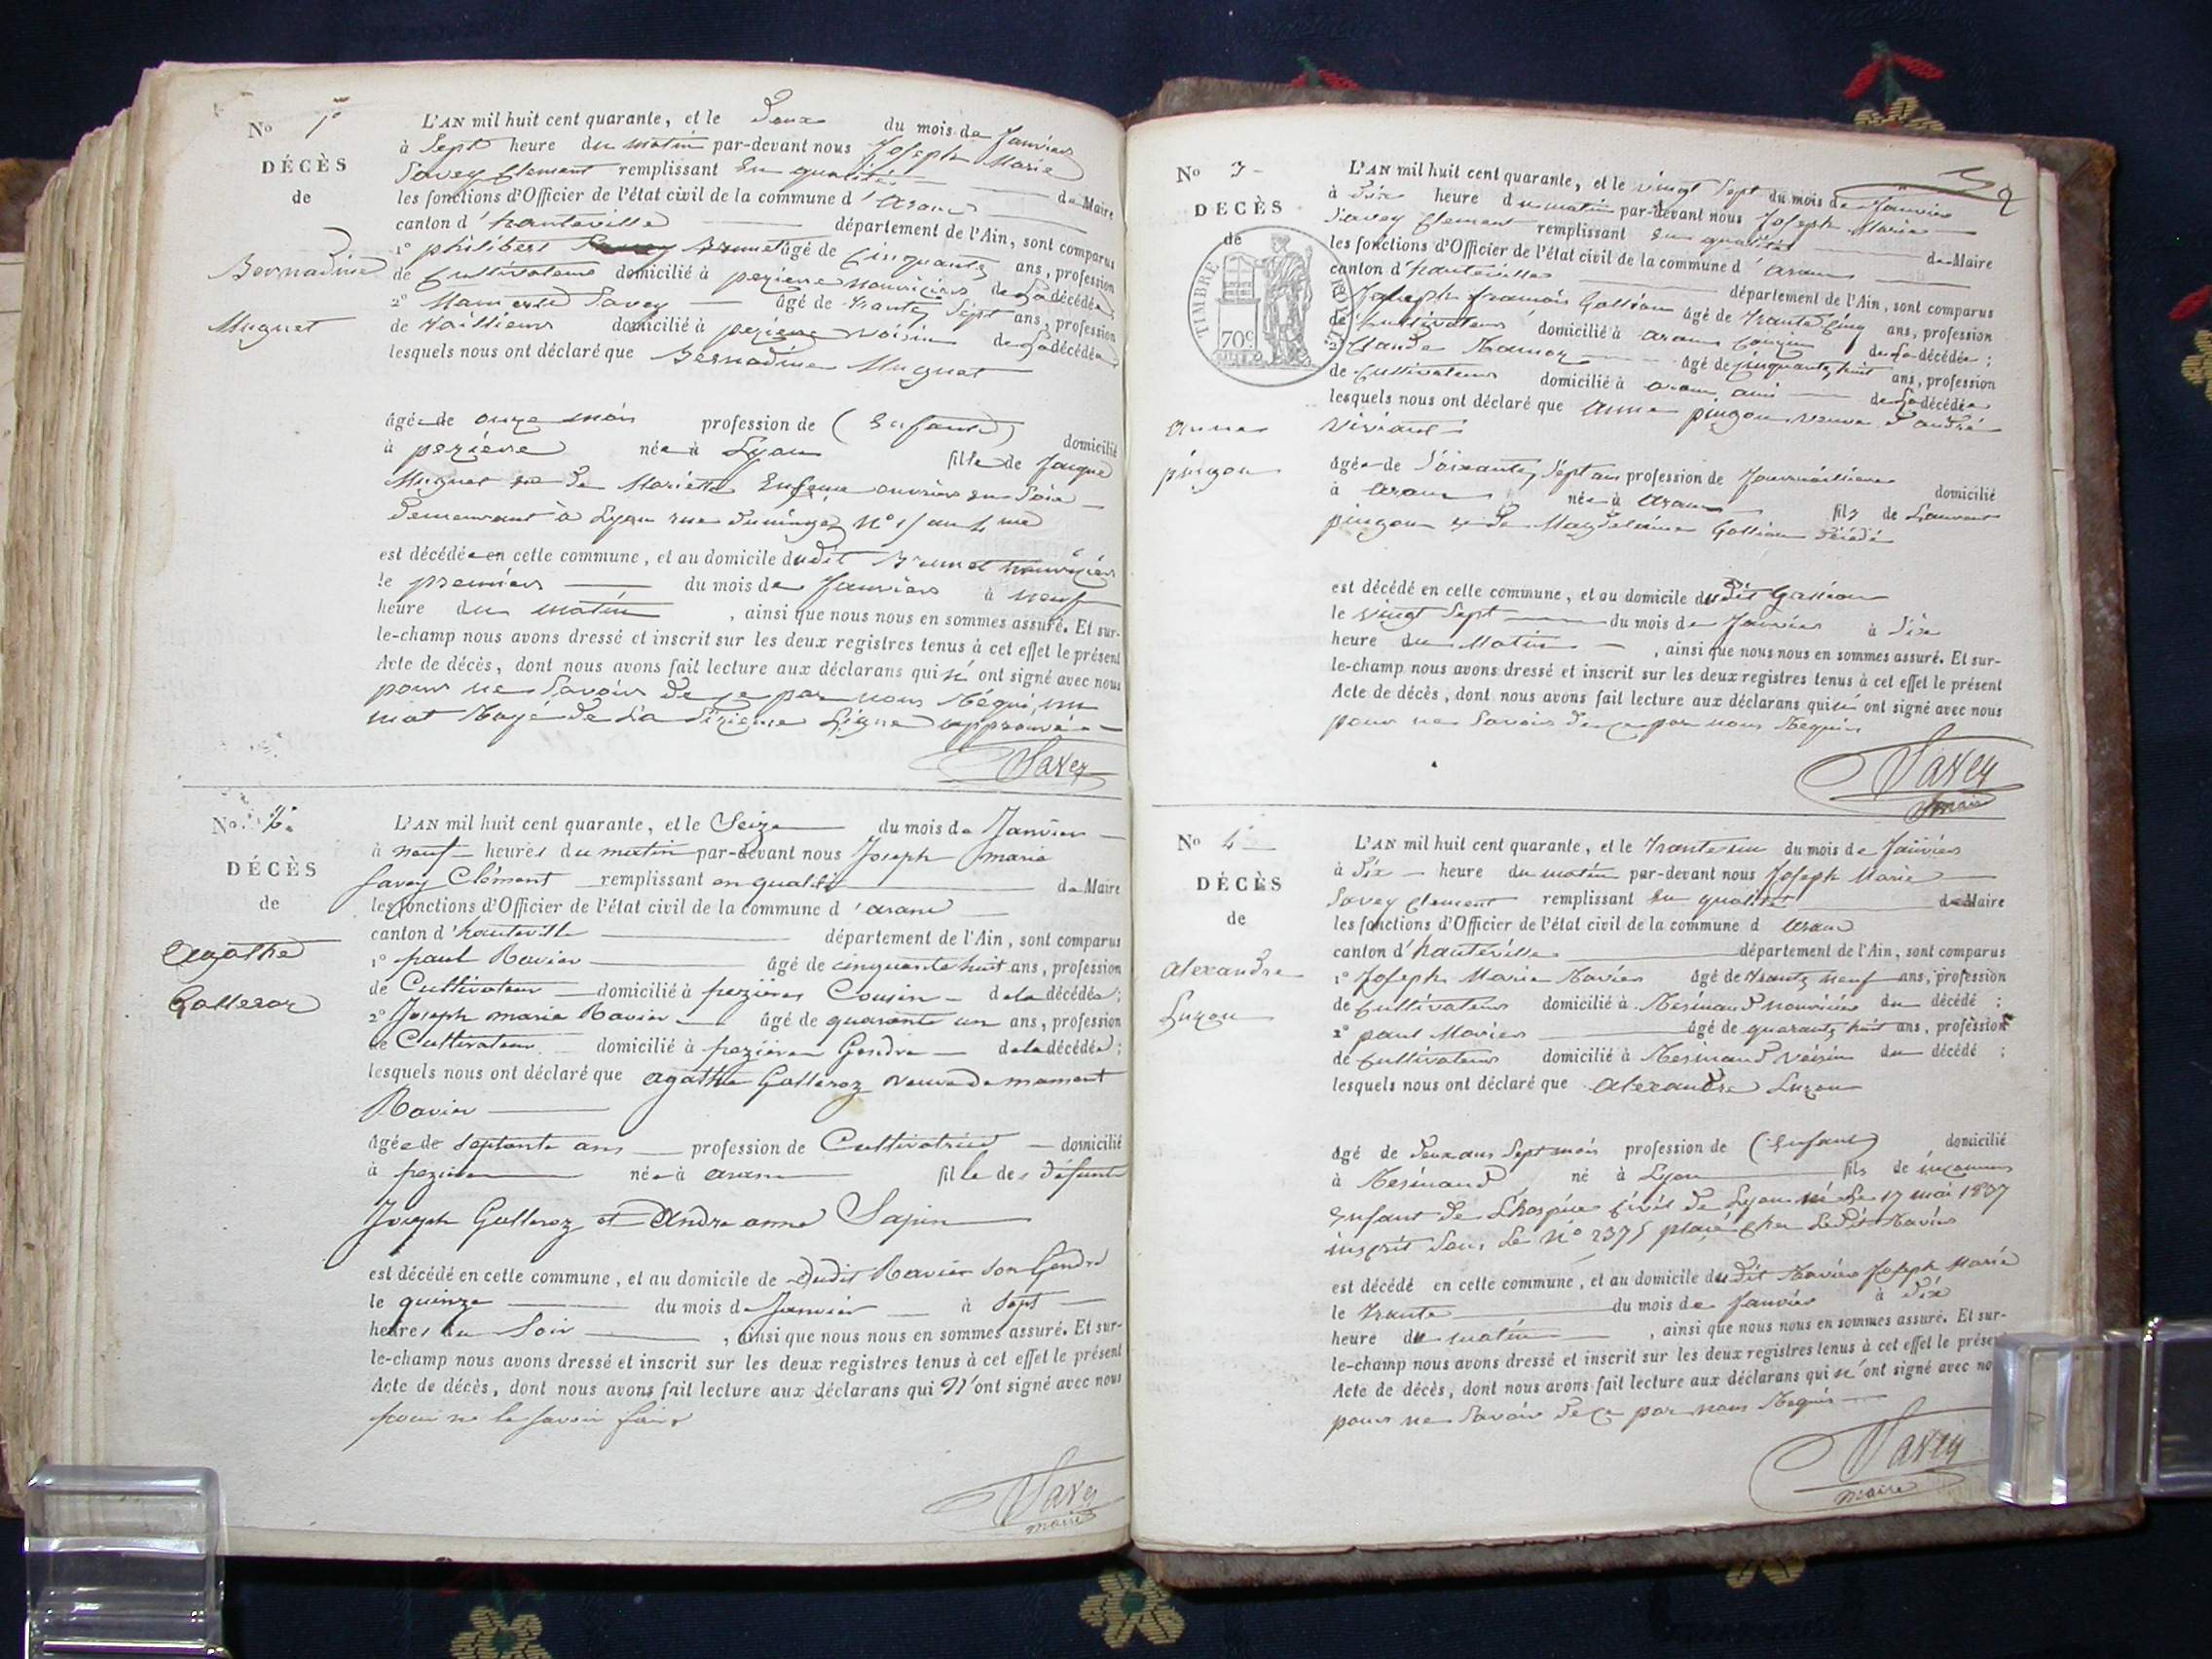 No 1o
DÉCÈS
de
Bernadine
Muguet
L'AN mil huit cent quarante, et le Deux du mois de Janvier
à Sept heure du matin par-devant nous Joseph Marie
Savey Clement remplissant En qualité de Maire
les fonctions d'Officier de l'état civil de la commune d'aranc
canton d'hauteville département de l'Ain, sont comparus
1o philibert Brunet âgé de Cinquante ans, profession
de Cultivateur domicilié à peziere nourricier de la décédée
2o Savey âgé de trante Sept ans, profession
de domicilié à peziere voisin de la décédée
lesquels nous ont déclaré que Bernadine Muguet
âgée de onze mois profession de (Enfant) domicilié
à pezière née à Lyon fille de Jaque
Muguet et de Mariette ouvrier en Soie
demeurant à Lyon rue No
est décédée en cette commune, et au domicile dudit Brunet nourricier
le premier du mois de Janvier à neuf
heure du matin, ainsi que nous nous en sommes assuré. Et sur-
le-champ nous avons dressé et inscrit sur les deux registres tenus à cet effet le présent
Acte de décès, dont nous avons fait lecture aux déclarans qui n'ont signé avec nous
pour ne Savoir de ce par nous Réquis, un
mot Rayé de La Sizieme Ligne approuvé
Savey
No 2
DÉCÈS
de
Agathe
Golleroz
L'AN mil huit cent quarante, et le Seize du mois de Janvier
à neuf heures du matin par-devant nous Joseph marie
Savey Clément remplissant en qualité de Maire
les fonctions d'Officier de l'état civil de la commune d'aranc
canton d'hauteville département de l'Ain, sont comparus
1o paul Ravier âgé de cinquante huit ans, profession
de Cultivateur domicilié à pezières Cousin de la décédée;
2o Joseph marie Ravier âgé de quarante un ans, profession
de Cultivateur domicilié à pezieres Gendre de la décédée;
lesquels nous ont déclaré que agathe Golleroz veuve de mament
Ravier
âgée de septante ans profession de Cultivatrice domicilié
à pezieres née à aranc fille des défunts
Joseph Golleroz et Andreanne Sapin
est décédé en cette commune, et au domicile de Dudit Ravier son Gendre
le quinze du mois de Janvier à Sept
heures du Soir, ainsi que nous nous en sommes assuré. Et sur-
le-champ nous avons dressé et inscrit sur les deux registres tenus à cet effet le présent
Acte de décès, dont nous avons fait lecture aux déclarans qui N'ont signé avec nous
pour ne le savoir faire
Savey
maire
No 3
DÉCÈS
de
TIMBRE ROYAL
70c
anne
pingon
L'AN mil huit cent quarante, et le vingt Sept du mois de Janvier
à Dix heure du matin par-devant nous Joseph Marie
Savey Clement remplissant En qualité de Maire
les fonctions d'Officier de l'état civil de la commune d'aranc
canton d'hauteville département de l'Ain, sont comparus
Joseph francois Gallian âgé de trante Cinq ans, profession
de Cultivateur domicilié à aranc Cousin de la décédée;
2o Claude âgé de Cinquante huit ans, profession
de Cultivateur domicilié à aranc ami de la décédée
lesquels nous ont déclaré que anne pingon veuve d'andré
Viviant
âgée de Soixante Sept ans profession de Journaillière domicilié
à aranc née à aranc fils de Laurent
pingon et de Magdelaine Gollian
est décédé en cette commune, et au domicile dudit Gallian
le vingt Sept du mois de Janvier à Six
heure du Matin, ainsi que nous nous en sommes assuré. Et sur-
le-champ nous avons dressé et inscrit sur les deux registres tenus à cet effet le présent
Acte de décès, dont nous avons fait lecture aux déclarans qui n'ont signé avec nous
pour ne Savoir de ce par nous Requis
Savey
maire
No 4
DÉCÈS
de
alexandre
Luzon
L'AN mil huit cent quarante, et le trante un du mois de Janvier
à Dix heure du matin par-devant nous Joseph Marie
Savey Clement remplissant En qualité de Maire
les fonctions d'Officier de l'état civil de la commune d aranc
canton d'hauteville département de l'Ain, sont comparus
1o Joseph Marie Ravier âgé de trante neuf ans, profession
de Cultivateur domicilié à Résinand nourricier du décédé;
2o paul âgé de quarante huit ans, profession
de Cultivateur domicilié à Résinand Voisin du décédé;
lesquels nous ont déclaré que alexandre Luzon
âgé de Deux ans Sept mois profession de (Enfant) domicilié
à Résinand né à Lyon fils de inconnus
Enfant de L'hospice Civil de Lyon né Le 17 mai 1837
inscrit Sous Le No 2375 placé chez Ledit Ravier
est décédé en cette commune, et au domicile dudit Ravier Joseph Marie
le trante du mois de Janvier à Dix
heure du matin, ainsi que nous nous en sommes assuré. Et sur-
le-champ nous avons dressé et inscrit sur les deux registres tenus à cet effet le présent
Acte de décès, dont nous avons fait lecture aux déclarans qui n'ont signé avec no
pour ne Savoir de ce par nous Requis
Savey
maire